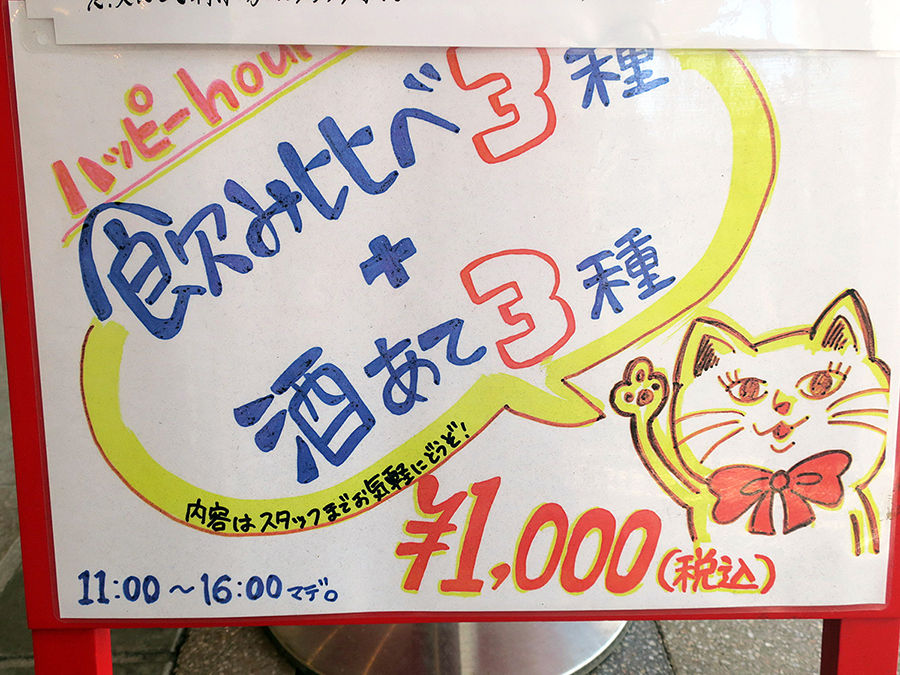 ハッピーhour
飲み比べ3種
+
酒あて3種
内容はスタッフまでお気軽にどうぞ!
¥1,000(税込)
11:00～16:00マデ。